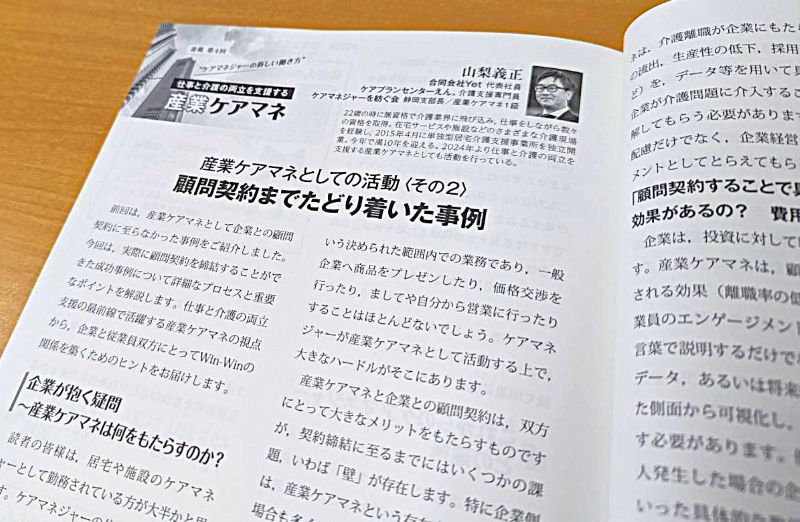 連載 第4回
“ケアマネジャーの新しい働き方”
仕事と介護の両立を支援する
産業ケアマネ
山梨義正
合同会社Yet 代表社員
ケアプランセンターえん。介護支援専門員
ケアマネジャーを紡ぐ会 静岡支部長／産業ケアマネ1級
22歳の時に無資格で介護業界に飛び込み、仕事をしながら数々
の資格を取得。在宅サービスや施設などのさまざまな介護現場
を経験し、2015年4月に単独型居宅介護支援事業所を独立開
業。今年で満10年を迎える。2024年より仕事と介護の両立を
支援する産業ケアマネとしても活動を行っている。
産業ケアマネとしての活動〈その2〉
顧問契約までたどり着いた事例
前回は、産業ケアマネとして企業との顧問
契約に至らなかった事例をご紹介しました。
今回は、実際に顧問契約を締結することがで
きた成功事例について詳細なプロセスと重要
なポイントを解説します。仕事と介護の両立
支援の最前線で活躍する産業ケアマネの視点
から、企業と従業員双方にとってWin-Winの
関係を築くためのヒントをお届けします。
企業が抱く疑問
〜産業ケアマネは何をもたらすのか？
読者の皆様は、居宅や施設のケアマネ
ャーとして勤務されている方が大半かと思
す。ケアマネジャーの
いう決められた範囲内での業務であり、一般
企業へ商品をプレゼンしたり、価格交渉を
行ったり、ましてや自分から営業に行ったり
することはほとんどないでしょう。ケアマネ
ジャーが産業ケアマネとして活動する上で、
大きなハードルがそこにあります。
産業ケアマネと企業との顧問契約は、双方
にとって大きなメリットをもたらすものです
が、契約締結に至るまでにはいくつかの課
題、いわば「壁」が存在します。特に企業側
は、産業ケアマネという存在
場合も多く
ネは、介護離職が企業にもた
の流出、生産性の低下、採用
ど）を、データ等を用いて具
企業が介護問題に介入するこ
解してもらう必要があります
配慮だけでなく、企業経営
メントとしてとらえてもら
「顧問契約することで具
効果があるの？ 費用
企業は、投資に対して
す。産業ケアマネは、顧
される効果（離職率の低
業員のエンゲージメン
言葉で説明するだけで
データ、あるいは将来
た側面から可視化し、
す必要があります。
人発生した場合の企
いった具体的な数